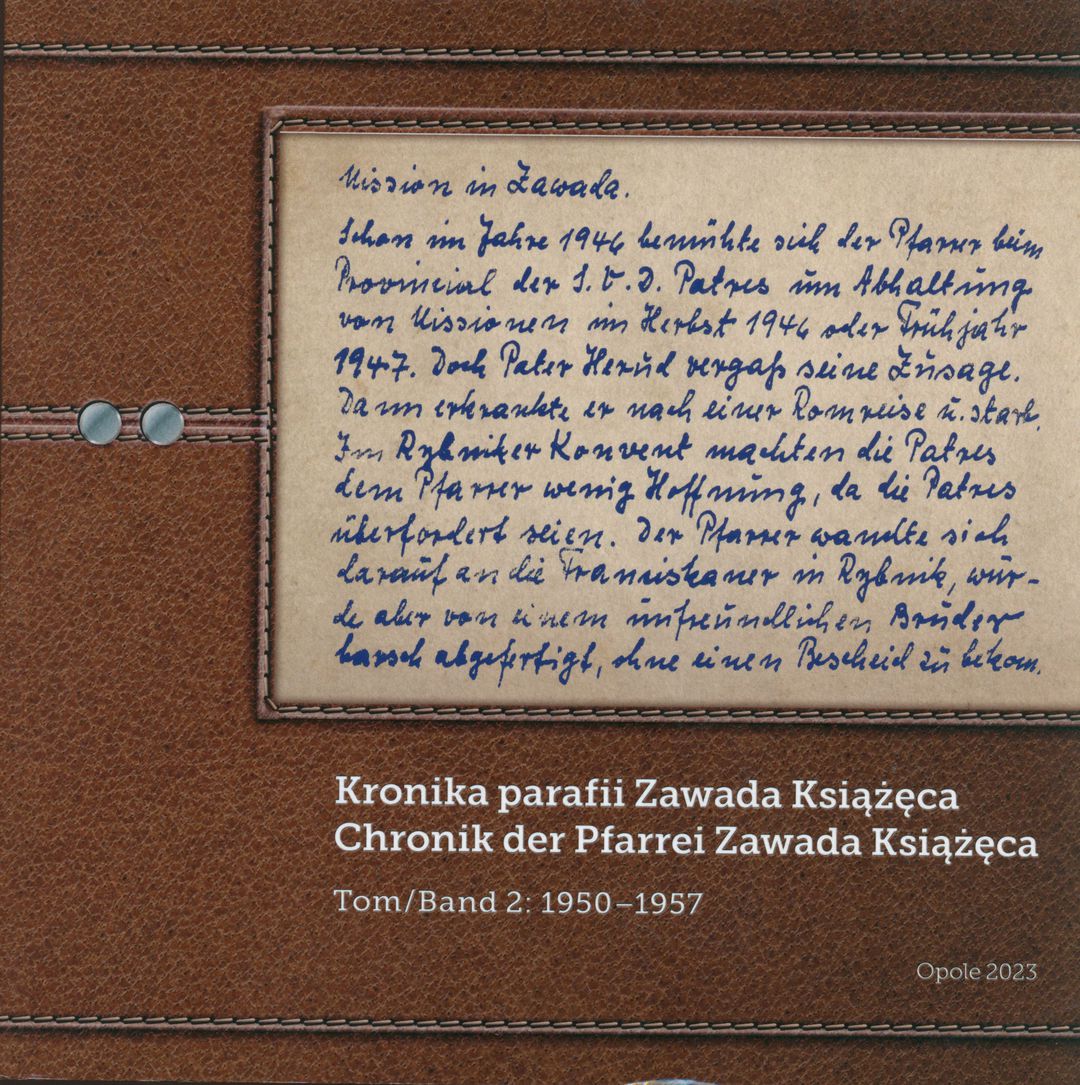 Mission in Zawada.
Schon im Jahre 1946 bemühte sich der Pfarrer beim
Provincial der S.V.D. Patres um Abhaltung
von Missionen im Herbst 1946 oder Frühjahr
1947. Doch Pater Herud vergaß seine Zusage.
Dann erkrankte er nach einer Romreise u. starb.
Im Rybniker Konvent machten die Patres
dem Pfarrer wenig Hoffnung, da die Patres
überfordert seien. Der Pfarrer wandte sich
darauf an die Franziskaner in Rybnik, wur-
de aber von einem unfreundlichen Bruder
barsch abgefertigt, ohne einen Bescheid zu bekom.
Kronika parafii Zawada Książęca
Chronik der Pfarrei Zawada Książęca
Tom/Band 2: 1950–1957
Opole 2023